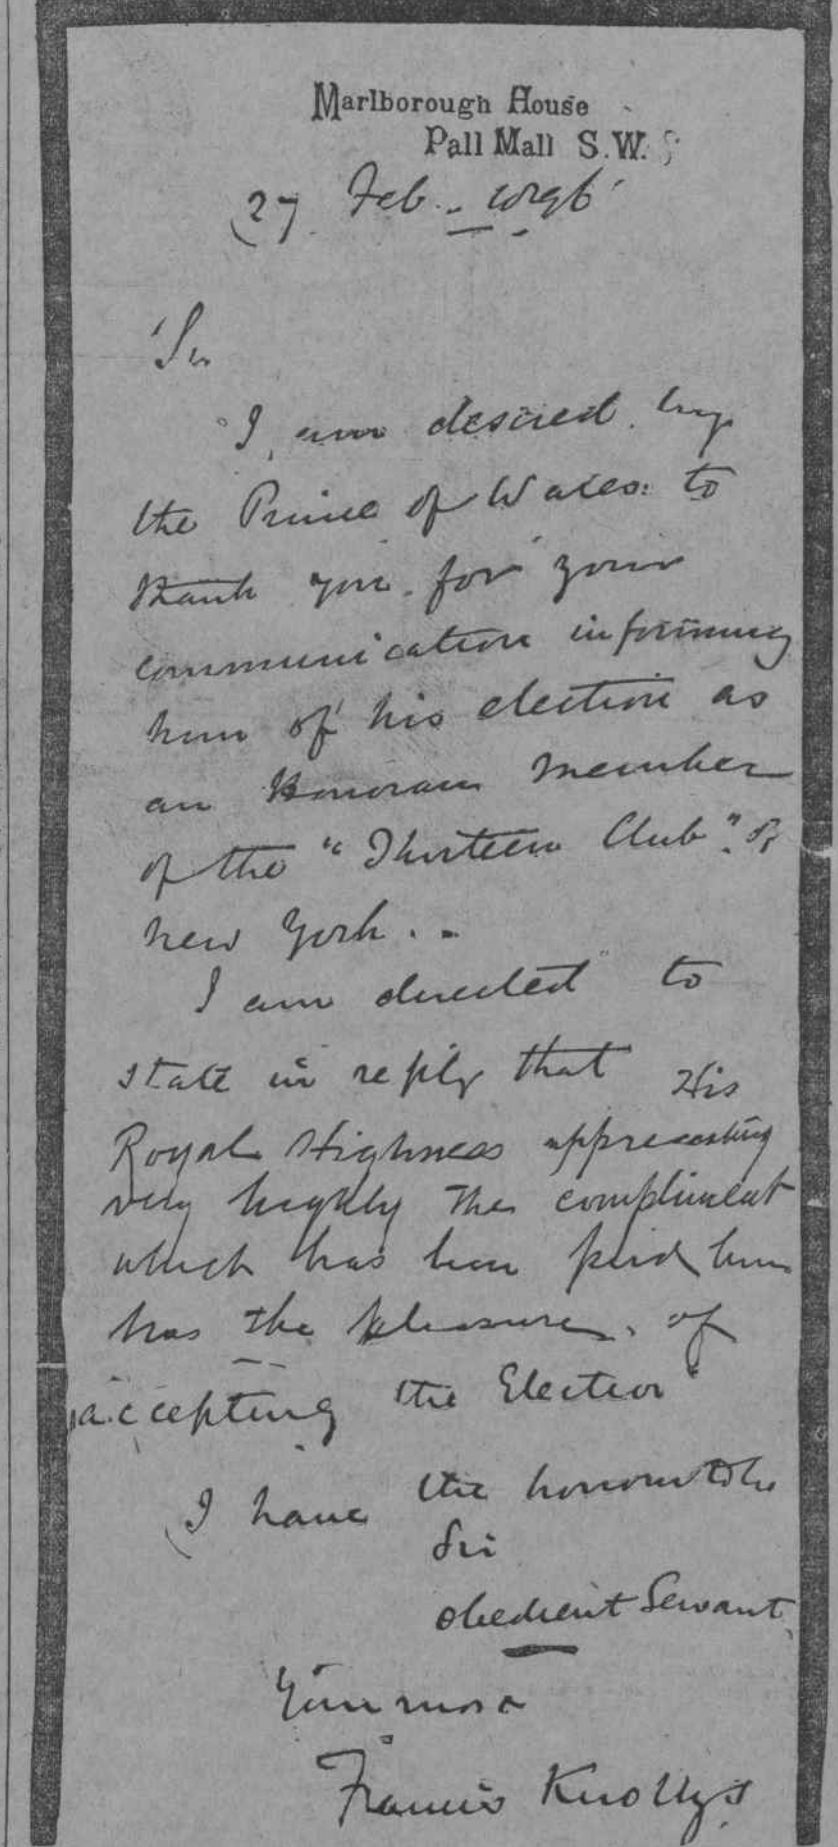 Marlborough House
Pall Mall S.W.
27 Feb.
Sir
I am desired by
the Prince of Wales to
thank you for your
communication informing
him of his election as
an Honorary member
of the "Thirteen Club" of
New York.
I am directed to
state in reply that His
Royal Highness appreciating
very highly the compliment
which has been paid him
has the pleasure of
accepting the Election
I have the honour to be
Sir
obedient Servant
Your most
Francis Knollys